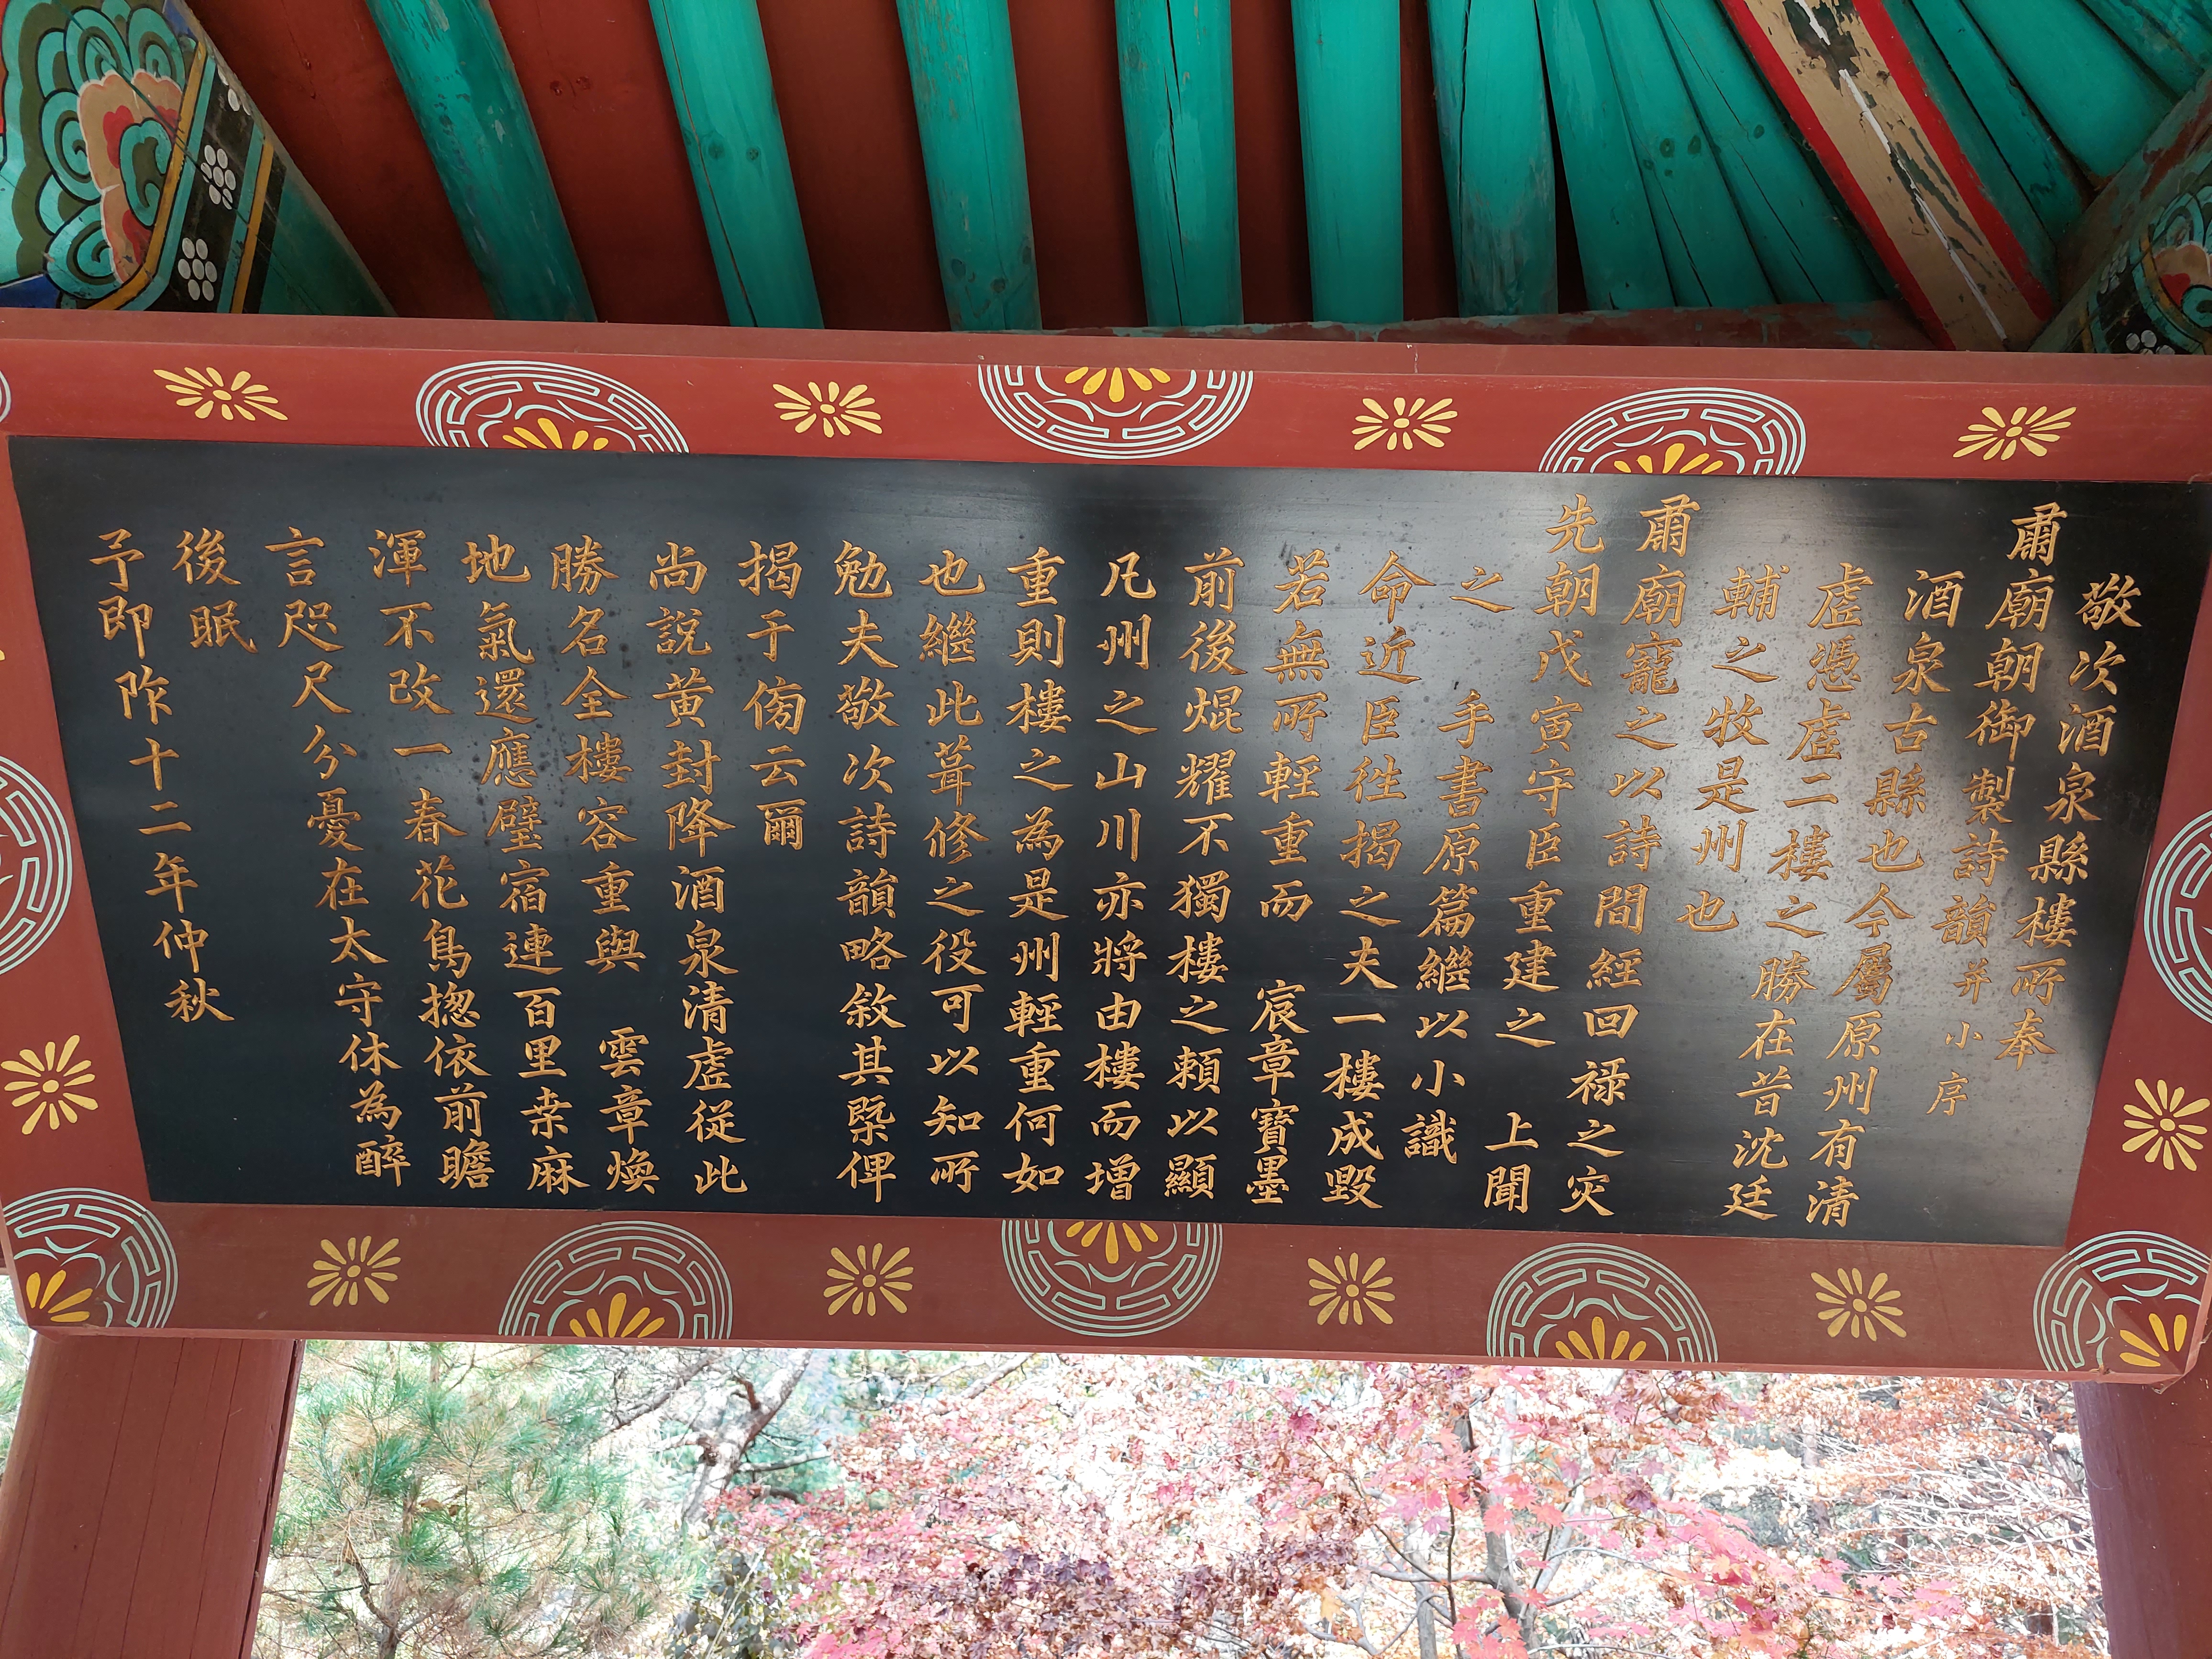 敬次酒泉縣樓所奉
肅廟朝御製詩韻并小序
酒泉古縣也今屬原州有清
虛憑虛二樓之勝在昔沈廷
輔之牧是州也
肅廟寵之以詩間經回祿之灾
先朝戊寅守臣重建之 上聞
之 手書原篇繼以小識
命近臣徃揭之夫一樓成毀
若無所輕重而 宸章寶墨
前後焜耀不獨樓之頼以顯
凡州之山川亦將由樓而增
重則樓之為是州輕重何如
也繼此葺修之役可以知所
勉夫敬次詩韻略敘其槩俾
揭于傍云爾
尚說黄封降酒泉清虛從此
勝名全樓容重與 雲章煥
地氣還應壁宿連百里桒麻
渾不改一春花鳥揔依前瞻
言咫尺分憂在太守休為醉
後眠
予即阼十二年仲秋